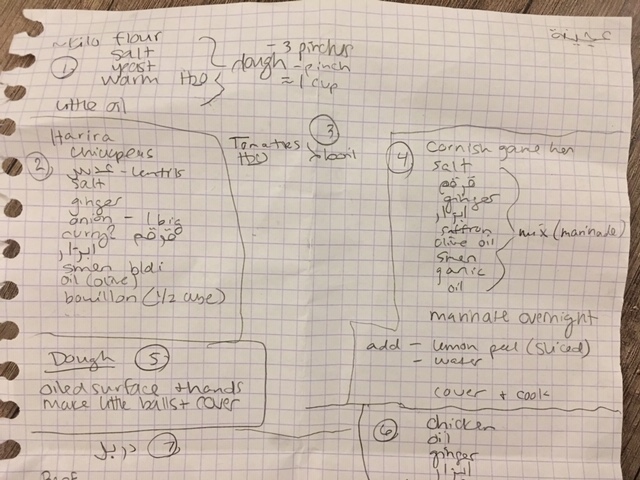 عجينة
~kilo flour
salt
yeast
warm H2O
little oil
1
dough
- 3 pinches
- pinch
≈ 1 cup
2
Harira
chickpeas
عدس - lentils
salt
ginger
onion - 1 big
curry? قرقم
ابزار
smen bldi
oil (olive)
bouillon (1/2 cube)
3
Tomatoes
H2O
> boil
4
Cornish game hen
salt
قرقم
ginger
ابزار
saffron
olive oil
smen
garlic
oil
mix (marinade)
marinate overnight
add - lemon peel (sliced)
- water
cover + cook
Dough 5
oiled surface + hands
make little balls + cover
6
chicken
oil
ginger
ابزار
7
Beef